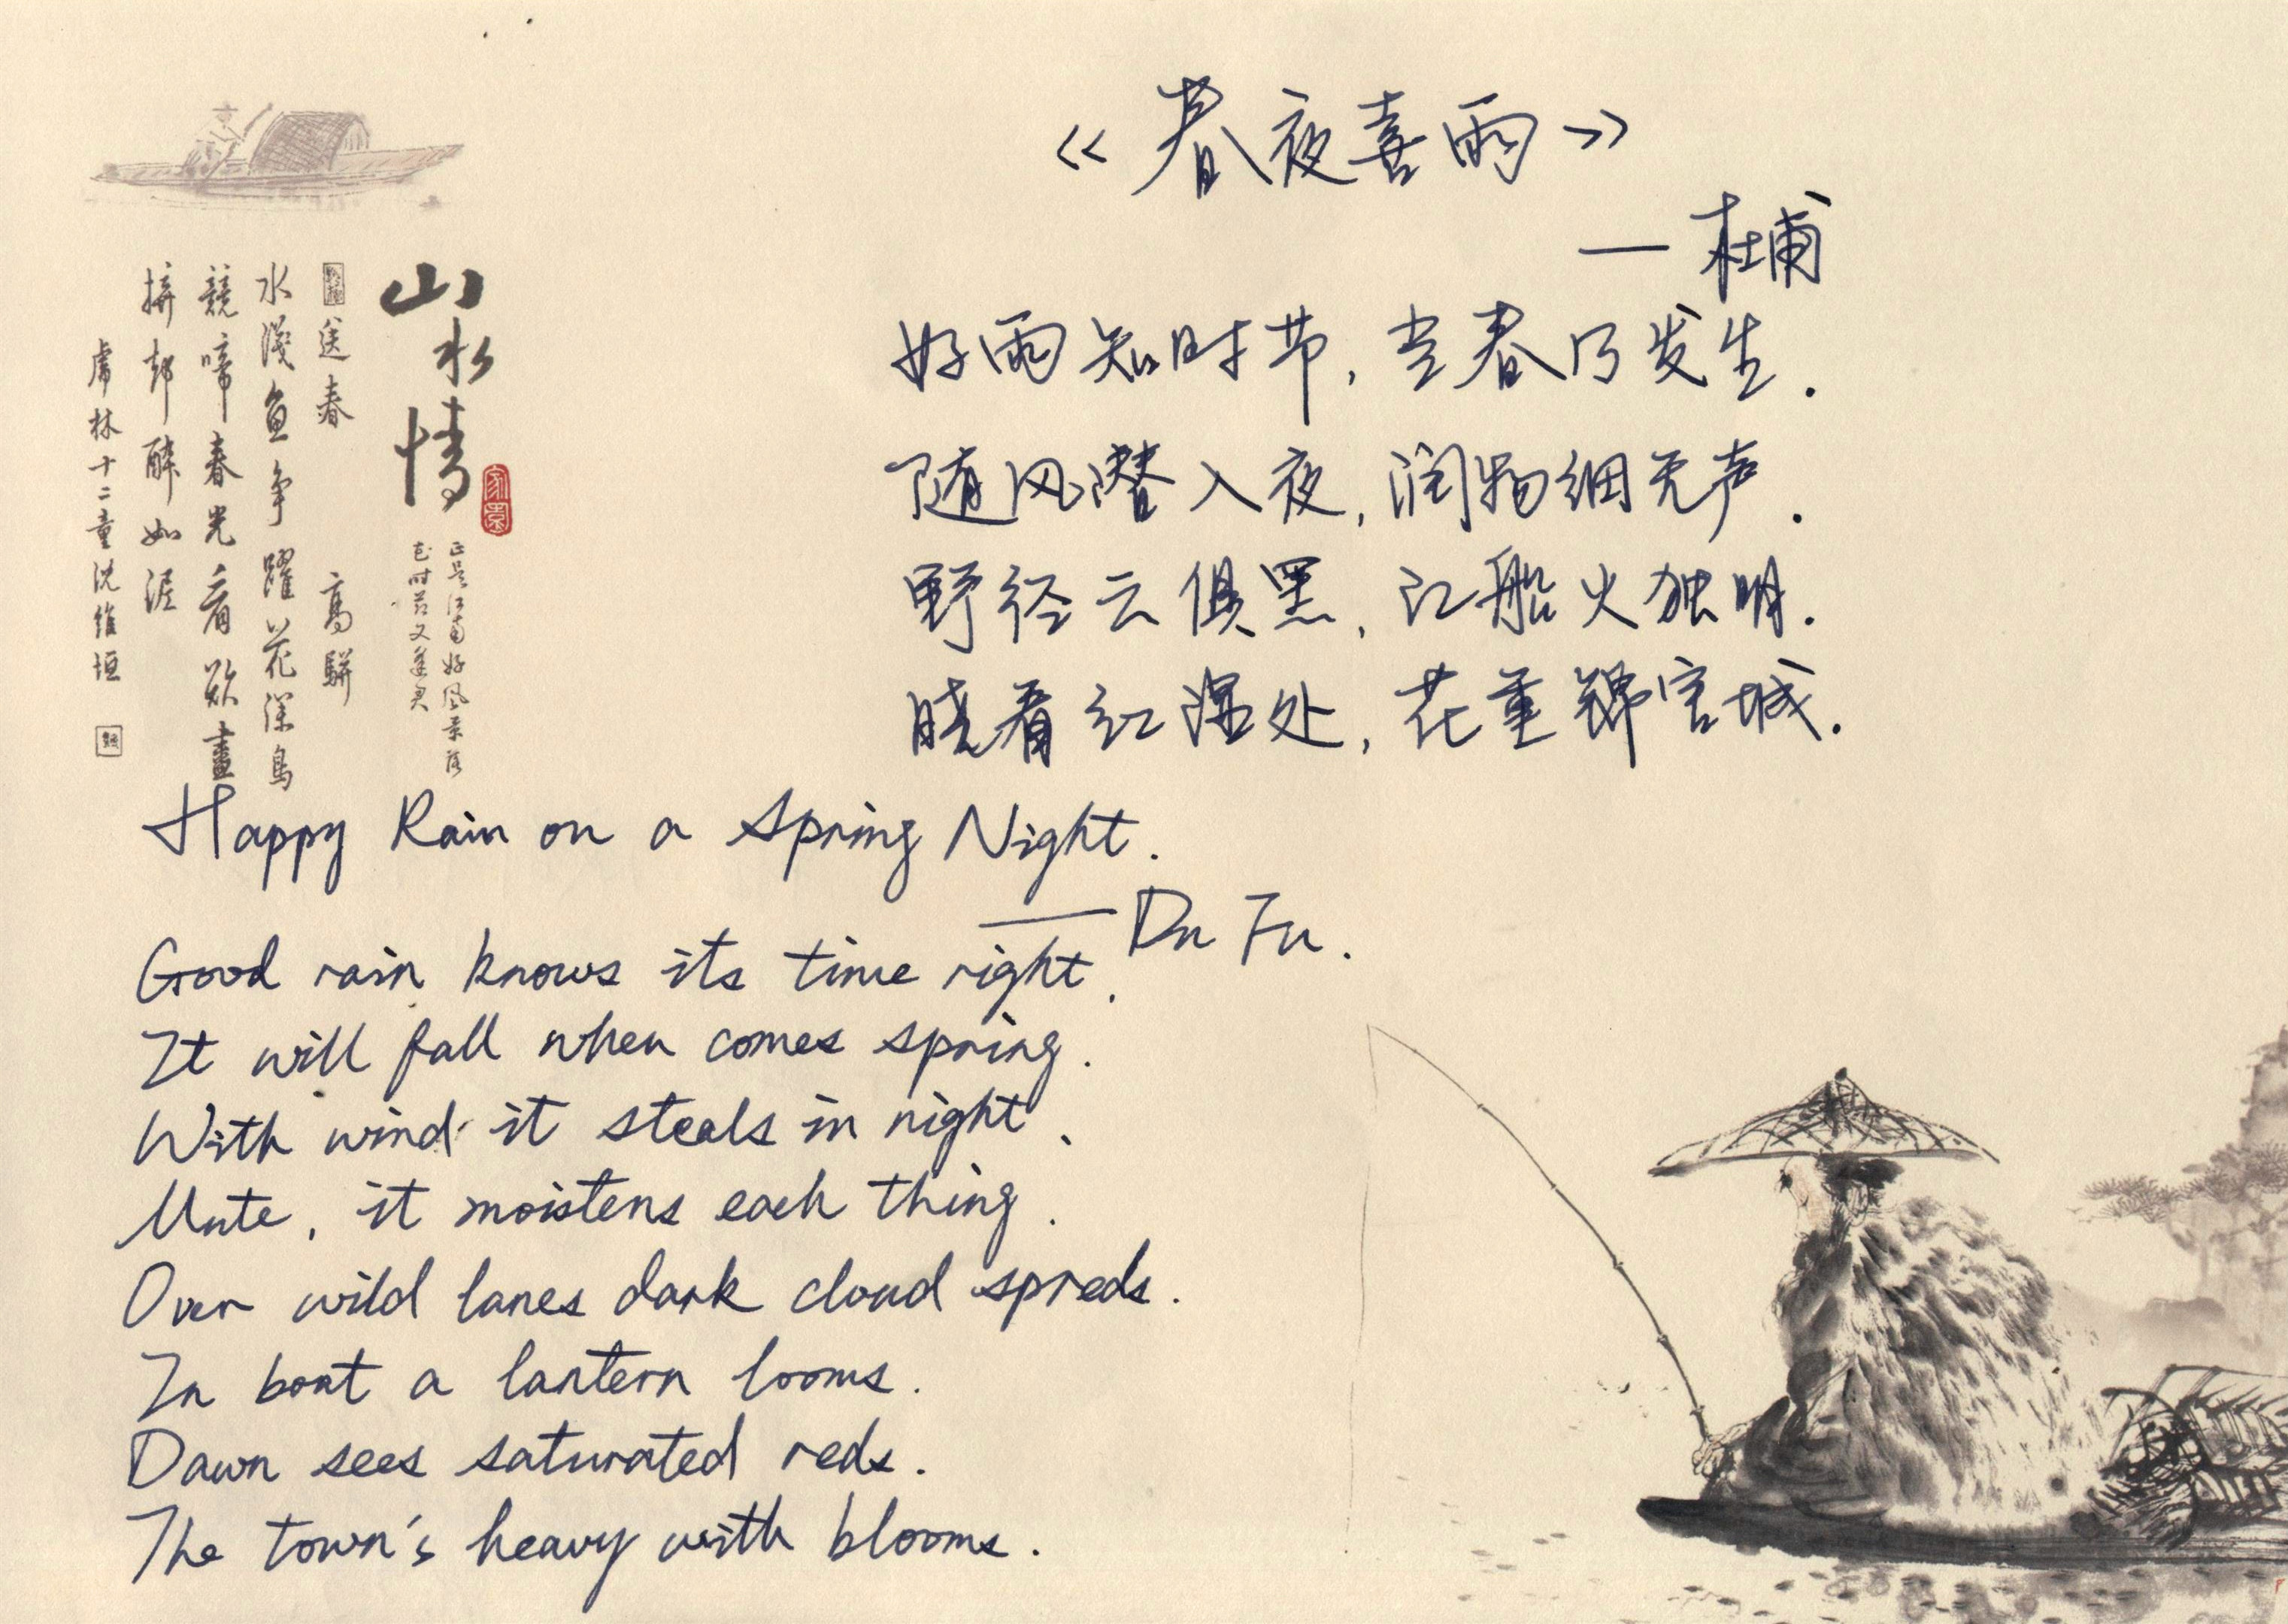 《春夜喜雨》
— 杜甫
好雨知时节，当春乃发生．
随风潜入夜，润物细无声．
野径云俱黑，江船火独明．
晓看红湿处，花重锦官城．
山水情
家园
正是江南好风景落
花时节又逢君
送春 高駢
水淺魚争躍花深鳥
競啼春光看欲盡
拚却醉如泥
虜林十二童沈維垣
Happy Rain on a Spring Night.
— Du Fu.
Good rain knows its time right.
It will fall when comes spring.
With wind it steals in night.
Mute, it moistens each thing.
Over wild lanes dark cloud spreds.
In boat a lantern looms.
Dawn sees saturated reds.
The town's heavy with blooms.